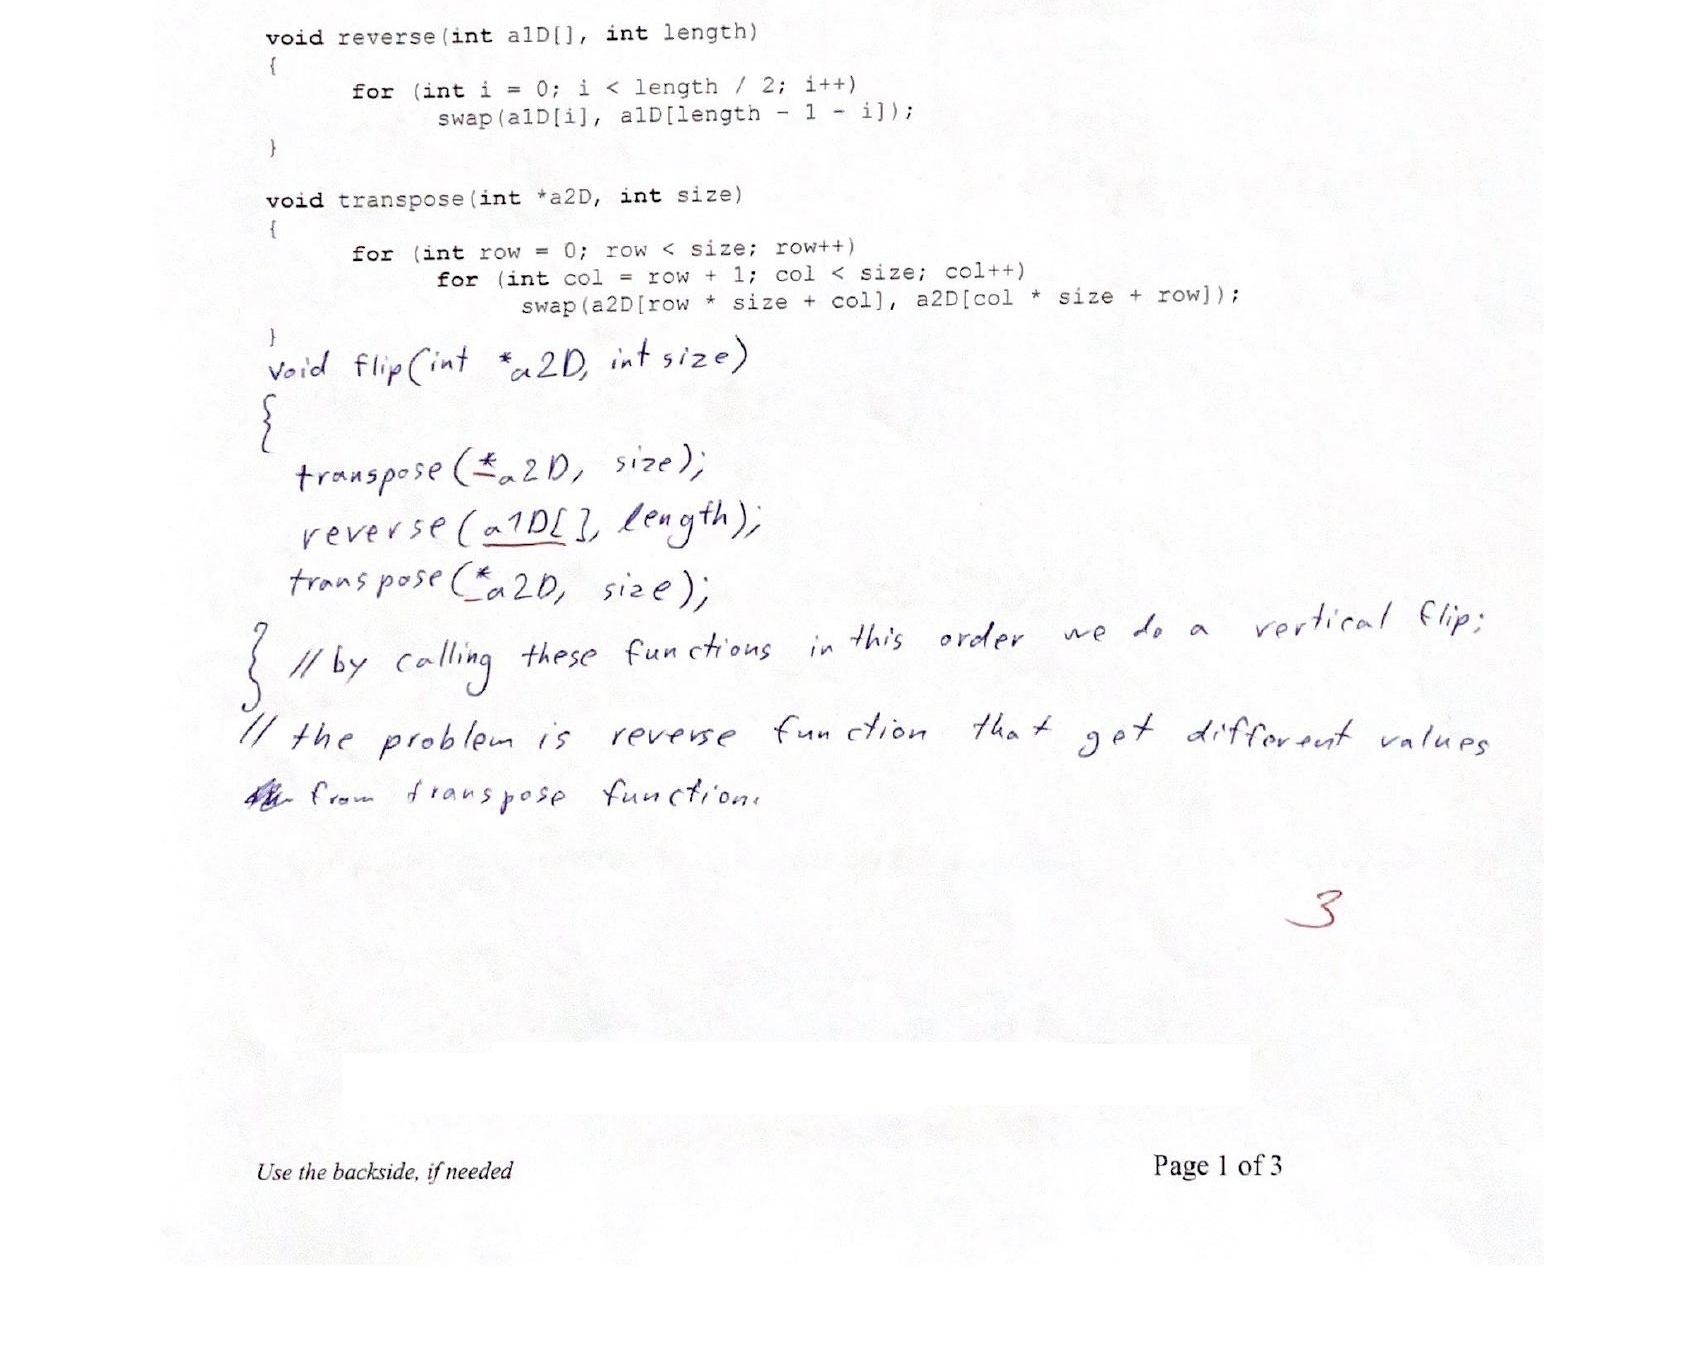 void reverse(int a1D[], int length)
{
for (int i = 0; i < length / 2; i++)
swap(a1D[i], a1D[length - 1 - i]);
}
void transpose(int *a2D, int size)
{
for (int row = 0; row < size; row++)
for (int col = row + 1; col < size; col++)
swap(a2D[row * size + col], a2D[col * size + row]);
}
void flip(int *a2D, int size)
{
transpose(*a2D, size);
reverse(a1D[], length);
transpose(*a2D, size);
} // by calling these functions in this order we do a vertical flip;
// the problem is reverse function that get different values
from transpose function.
3
Use the backside, if needed
Page 1 of 3